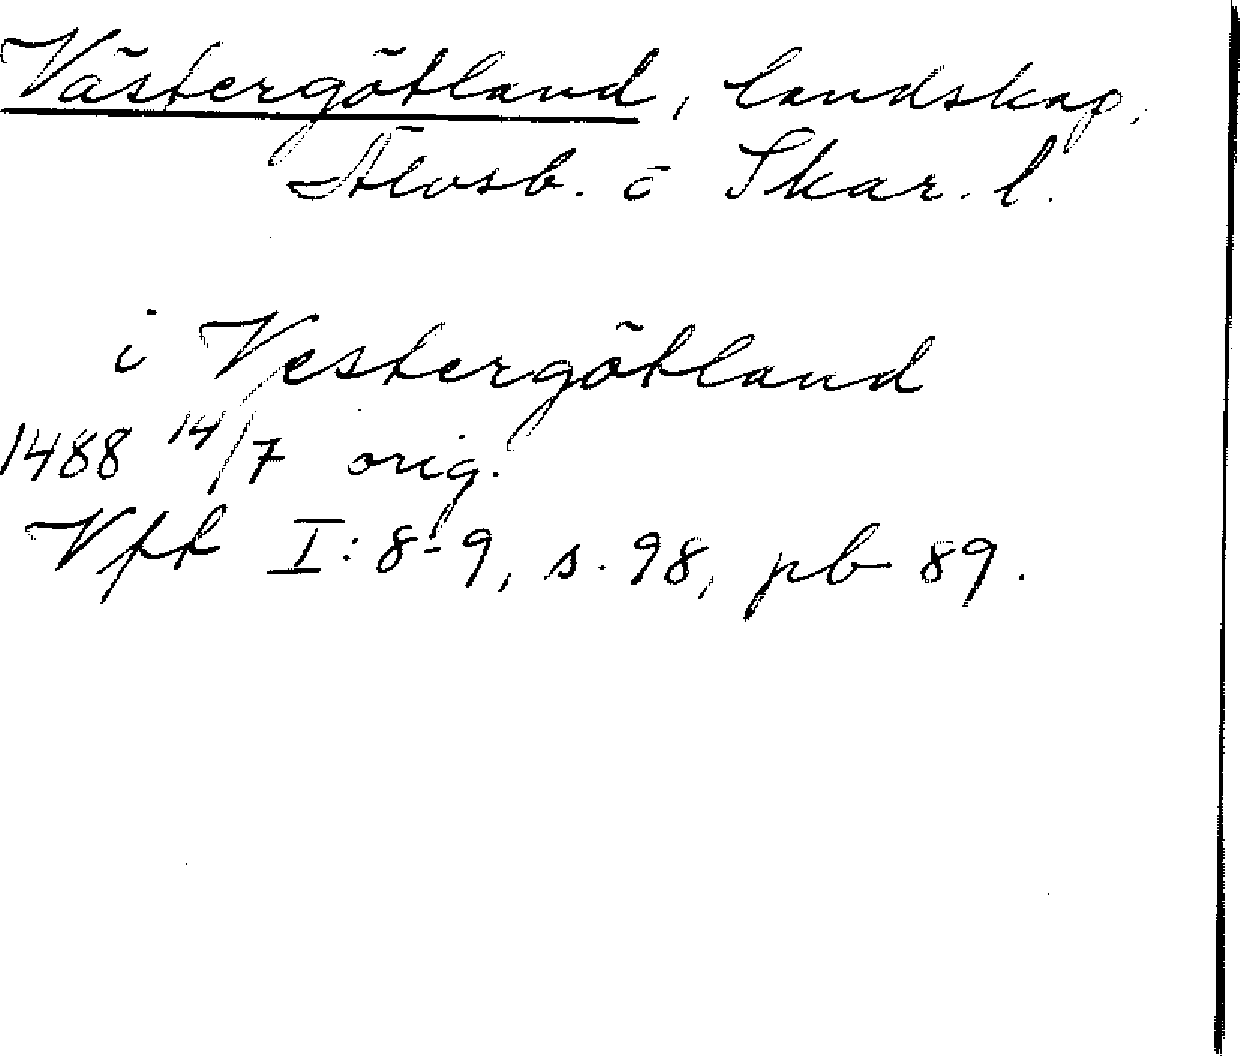 Västergötland, landskap,
Älvsb. o Skar. l.
i Vestergötland
1488 14/7 orig.
Vpk I: 8-9, s. 98, pb 89.